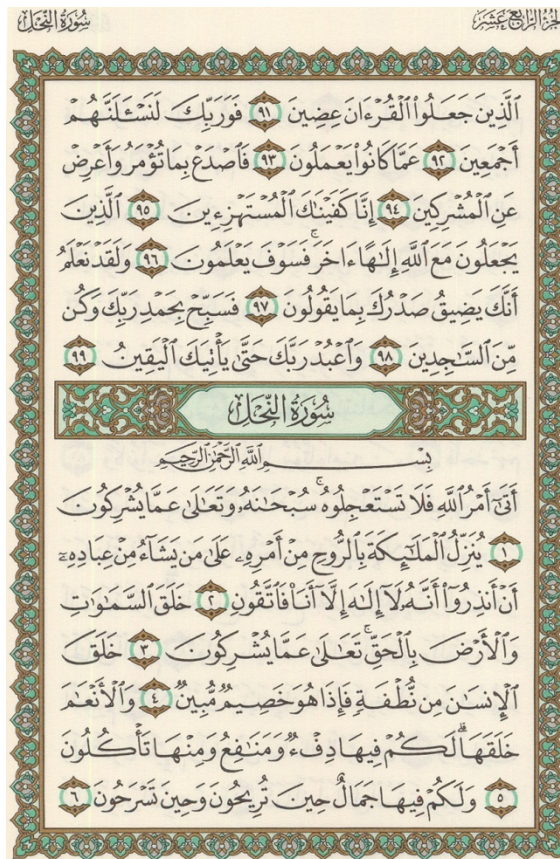 سُورَةُ النَّحْلِ
الجُزْءُ الرَّابِعَ عَشَرَ
الَّذِينَ جَعَلُوا۟ الْقُرْءَانَ عِضِينَ ٩١ فَوَرَبِّكَ لَنَسْـَٔلَنَّهُمْ
أَجْمَعِينَ ٩٢ عَمَّا كَانُوا۟ يَعْمَلُونَ ٩٣ فَاصْدَعْ بِمَا تُؤْمَرُ وَأَعْرِضْ
عَنِ الْمُشْرِكِينَ ٩٤ إِنَّا كَفَيْنَاكَ الْمُسْتَهْزِءِينَ ٩٥ الَّذِينَ
يَجْعَلُونَ مَعَ اللَّهِ إِلَـٰهًا ءَاخَرَ ۚ فَسَوْفَ يَعْلَمُونَ ٩٦ وَلَقَدْ نَعْلَمُ
أَنَّكَ يَضِيقُ صَدْرُكَ بِمَا يَقُولُونَ ٩٧ فَسَبِّحْ بِحَمْدِ رَبِّكَ وَكُن
مِّنَ السَّـٰجِدِينَ ٩٨ وَاعْبُدْ رَبَّكَ حَتَّىٰ يَأْتِيَكَ الْيَقِينُ ٩٩
سُورَةُ النَّحْلِ
بِسْمِ اللَّهِ الرَّحْمَـٰنِ الرَّحِيمِ
أَتَىٰٓ أَمْرُ اللَّهِ فَلَا تَسْتَعْجِلُوهُ ۚ سُبْحَـٰنَهُۥ وَتَعَـٰلَىٰ عَمَّا يُشْرِكُونَ
١ يُنَزِّلُ الْمَلَـٰٓئِكَةَ بِالرُّوحِ مِنْ أَمْرِهِۦ عَلَىٰ مَن يَشَآءُ مِنْ عِبَادِهِۦٓ
أَنْ أَنذِرُوٓا۟ أَنَّهُۥ لَآ إِلَـٰهَ إِلَّآ أَنَا۠ فَاتَّقُونِ ٢ خَلَقَ السَّمَـٰوَٰتِ
وَالْأَرْضَ بِالْحَقِّ ۚ تَعَـٰلَىٰ عَمَّا يُشْرِكُونَ ٣ خَلَقَ
الْإِنسَـٰنَ مِن نُّطْفَةٍ فَإِذَا هُوَ خَصِيمٌ مُّبِينٌ ٤ وَالْأَنْعَـٰمَ
خَلَقَهَا ۗ لَكُمْ فِيهَا دِفْءٌ وَمَنَـٰفِعُ وَمِنْهَا تَأْكُلُونَ
٥ وَلَكُمْ فِيهَا جَمَالٌ حِينَ تُرِيحُونَ وَحِينَ تَسْرَحُونَ ٦